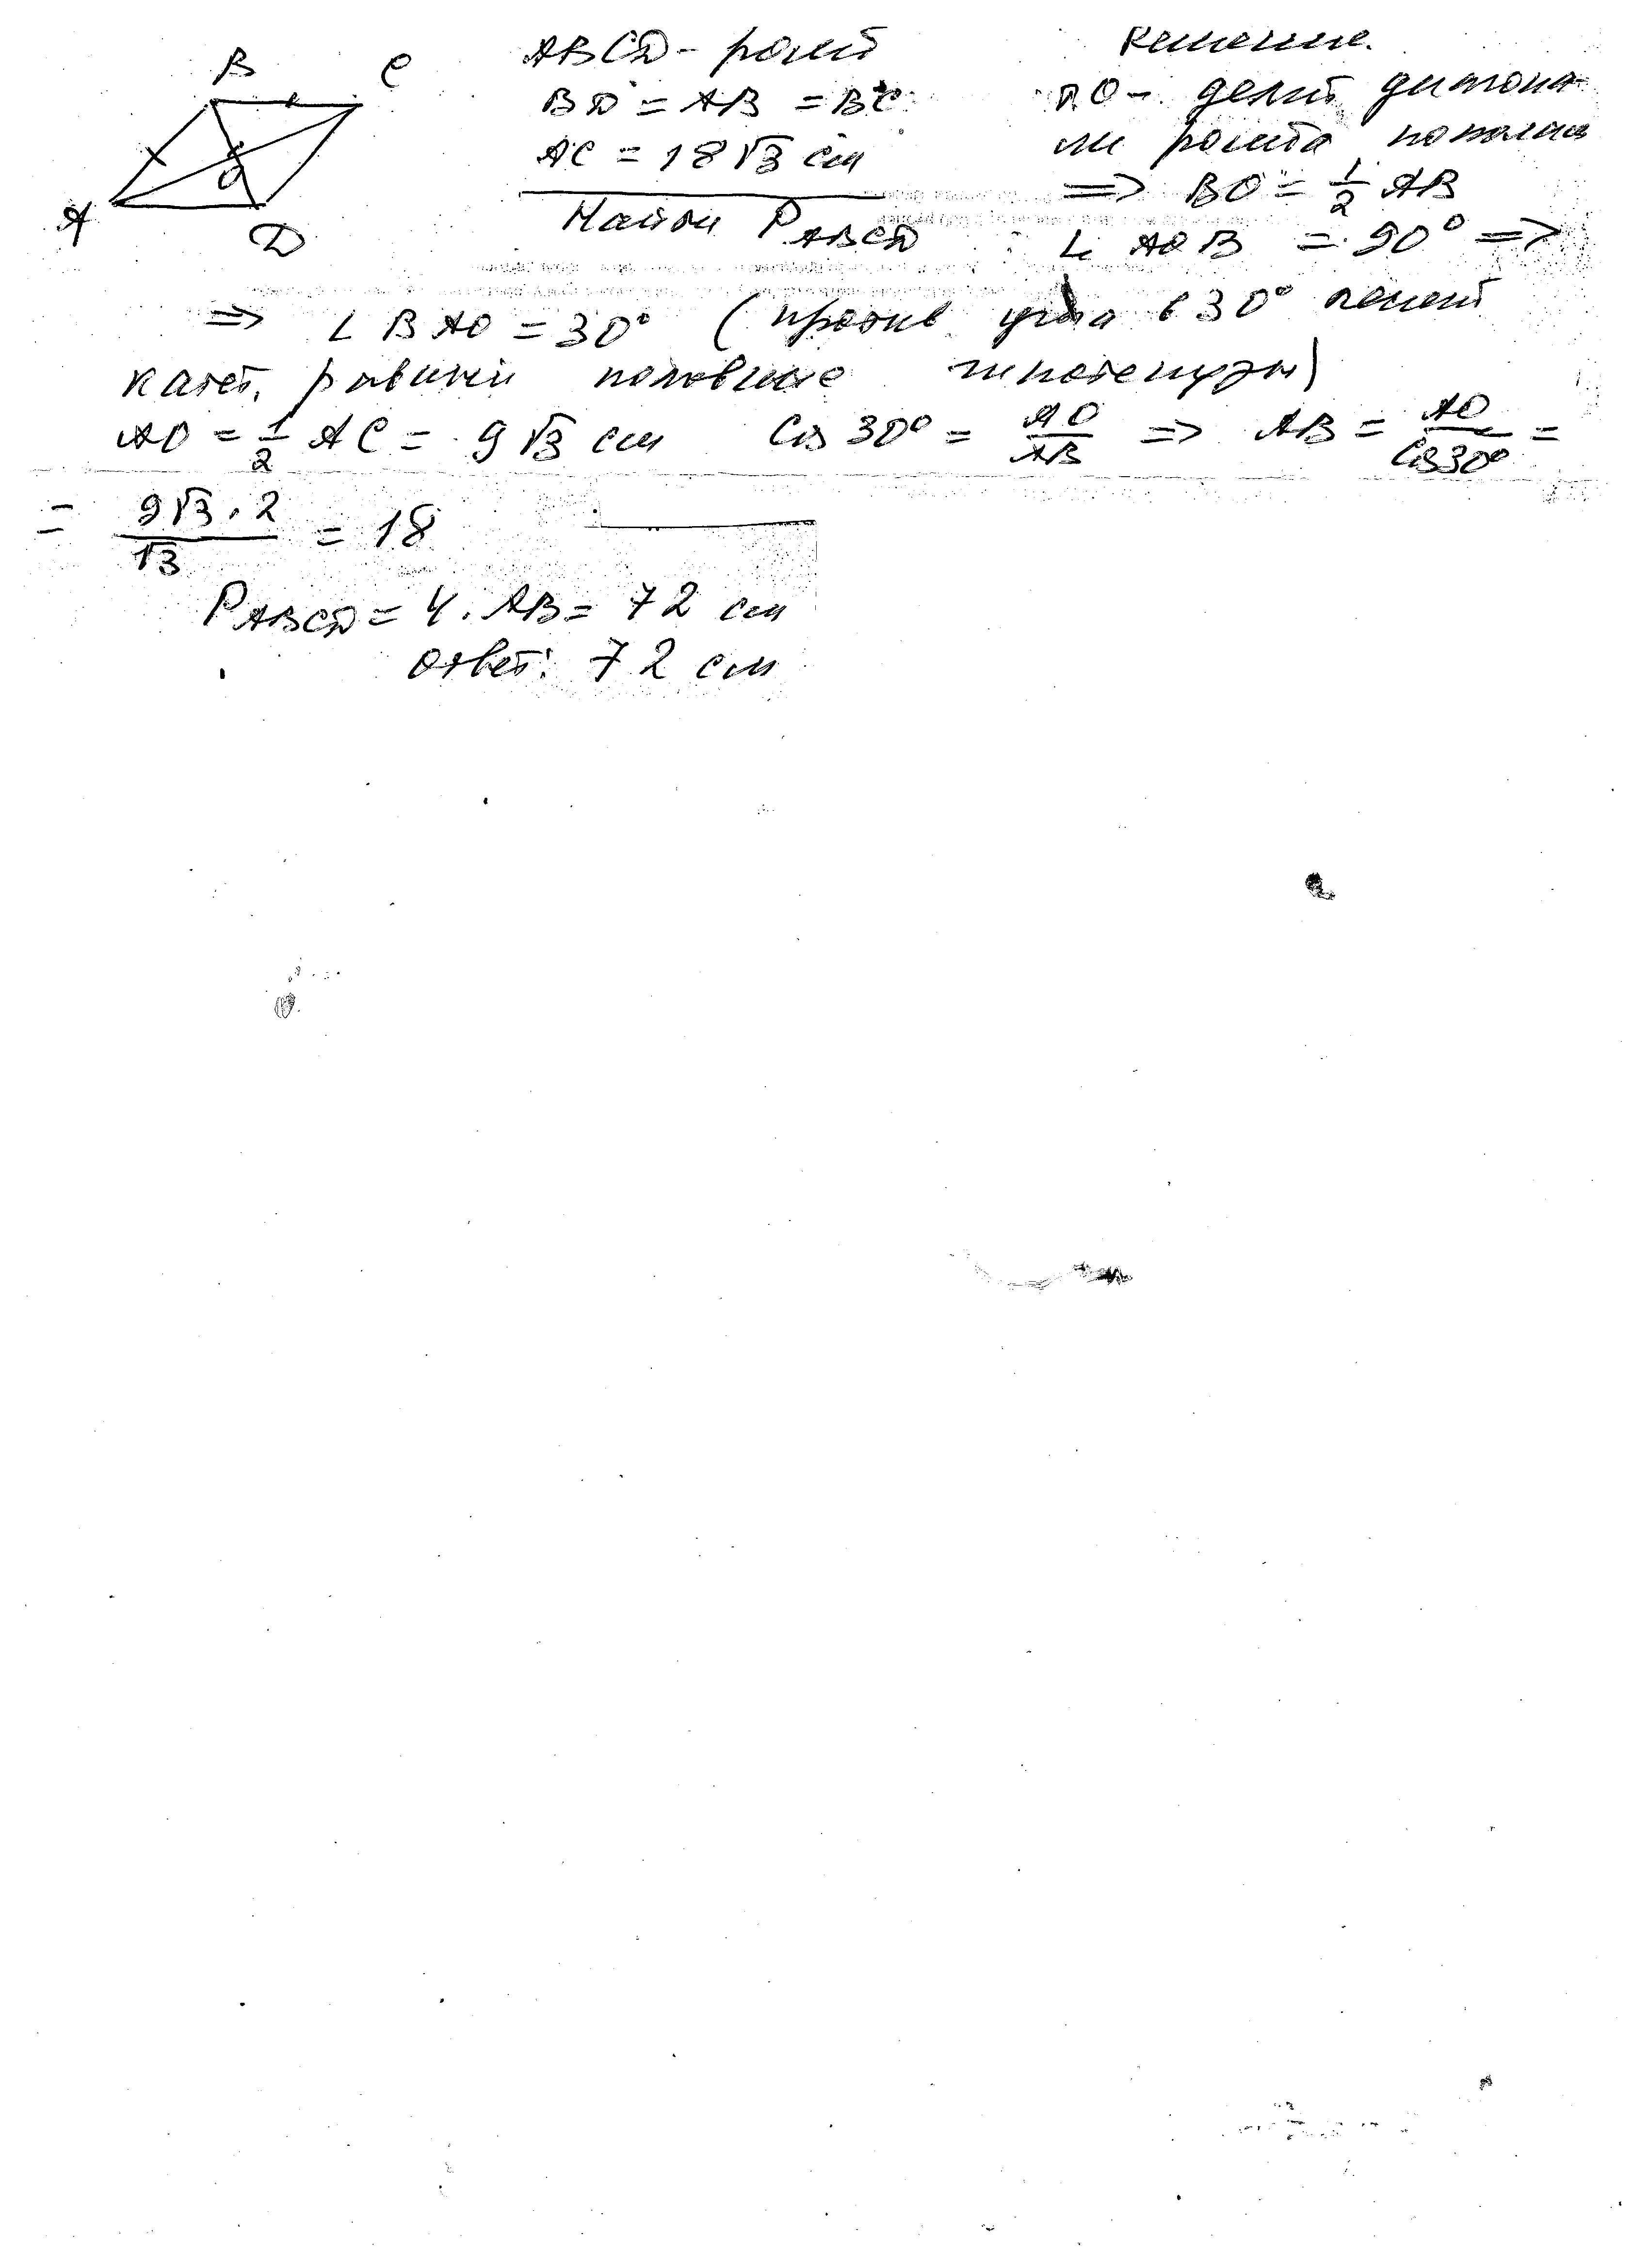 B C
A O
D
ABCD - ромб
BD = AB = BC
AC = 18√3 см
Найти P ABCD
Решение.
AO - делит диагона-
ли ромба пополам
=> BO = 1/2 AB
∠ AOB = 90° =>
=> ∠ BAO = 30° (против угла в 30° лежит
катет, равный половине гипотенузы)
AO = 1/2 AC = 9√3 см Cos 30° = AO/AB => AB = AO/Cos30° =
= 9√3 · 2/√3 = 18
P ABCD = 4 · AB = 72 см
ответ: 72 см